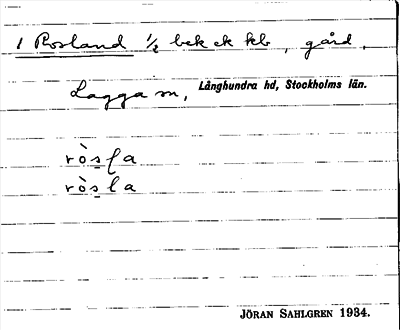 1 Rosland ½ bek ek kb, gård,
Lagga sn, Långhundra hd, Stockholms län.
ròsḷa
ròs̱la
JÖRAN SAHLGREN 1934.